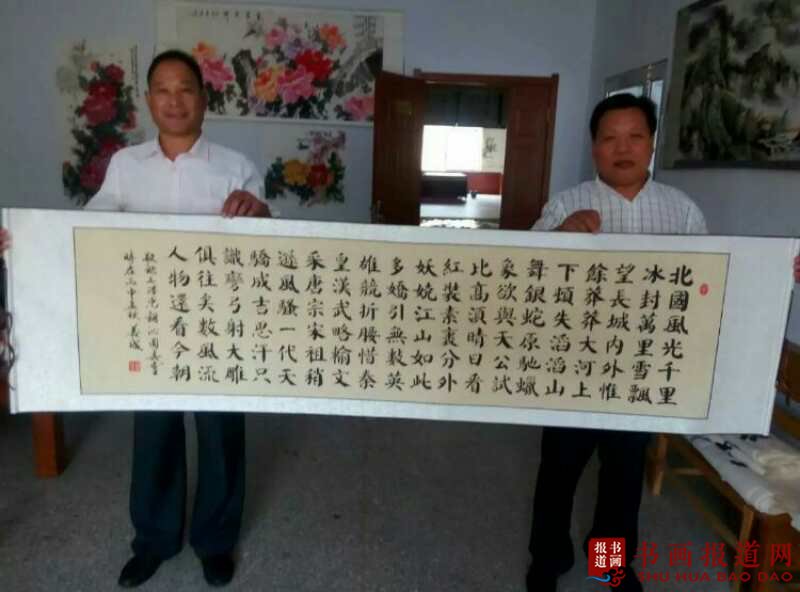 北國風光千里
冰封萬里雪飄
望長城内外惟
餘莽莽大河上
下頓失滔滔山
舞銀蛇原馳蠟
象欲與天公試
比高須晴日看
紅裝素裹分外
妖嬈江山如此
多嬌引無數英
雄競折腰惜秦
皇漢武略輸文
采唐宗宋祖稍
遜風騷一代天
驕成吉思汗只
識彎弓射大雕
俱往矣數風流
人物還看今朝
毛澤東詞沁園春雪
時在丙申孟秋
书画
报道
书画报道网
SHU HUA BAO DAO